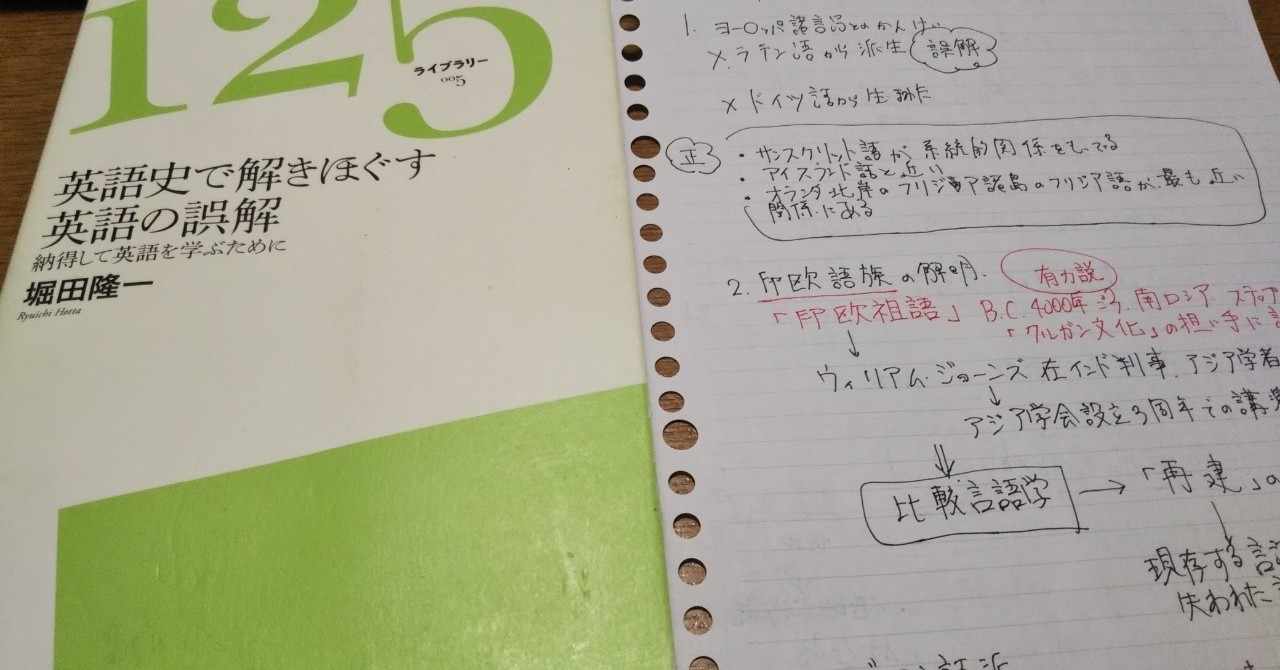 125
ライブラリー
005
英語史で解きほぐす
英語の誤解
納得して英語を学ぶために
堀田隆一
Ryuichi Hotta
1. ヨーロッパ諸言語とのかんけい
× ラテン語から派生 誤解
× ドイツ語から生まれた
正
・サンスクリット語が系統的関係をもってる
・アイスランド語と近い
・オランダ北岸のフリジア諸島のフリジア語が、最も近い
関係にある
2. 印欧語族の解明. 有力説
「印欧祖語」 B.C.4000年ごろ. 南ロシア ステップ
「クルガン文化」の担い手に
↓
ウィリアム・ジョーンズ 在インド判事. アジア学者
↓
アジア学会設立3周年での講
⇓
比較言語学 → 「再建」の
↓
現存する言
失われた